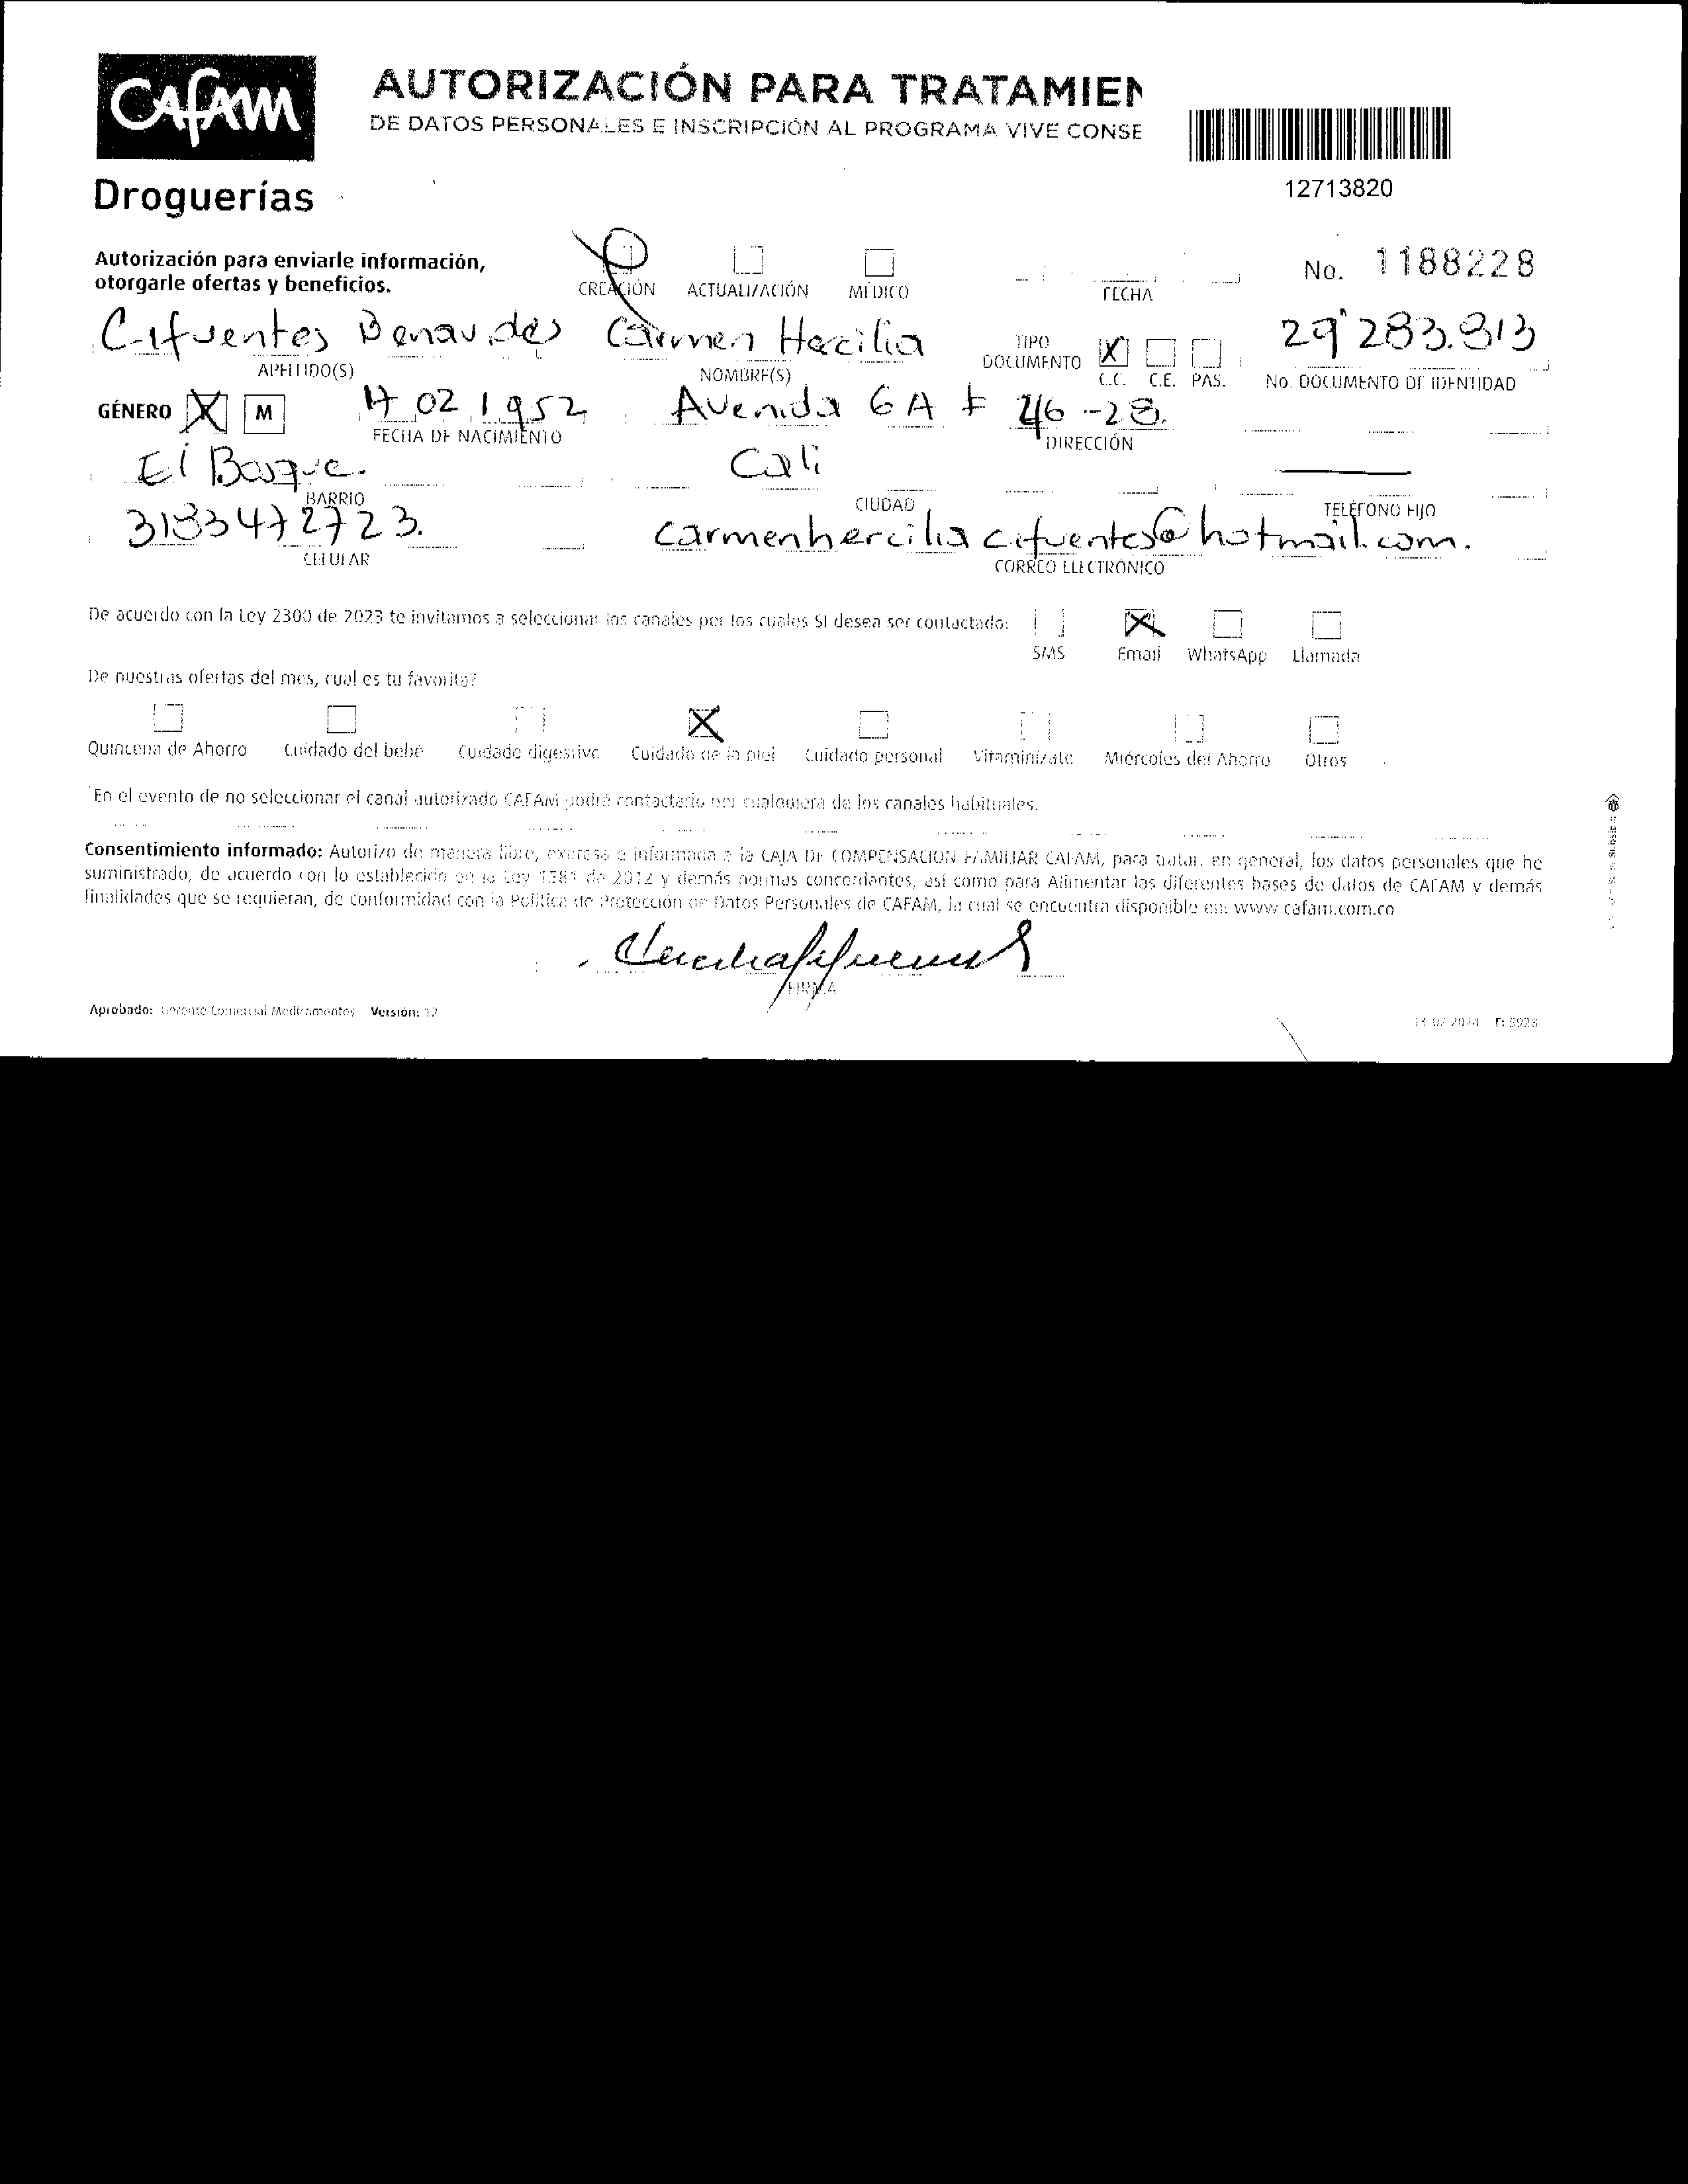 CAFAM
AUTORIZACIÓN PARA TRATAMIEN
DE DATOS PERSONALES E INSCRIPCIÓN AL PROGRAMA VIVE CONSE
Droguerías
12713820
Autorización para enviarle información,
otorgarle ofertas y beneficios.
CREACIÓN ACTUALIZACIÓN MÉDICO FECHA
No. 1188228
Cifuentes Benavides Carmen Hercilia 29'283.813
APELLIDO(S) NOMBRE(S) TIPO DOCUMENTO X C.C. C.E. PAS. No. DOCUMENTO DE IDENTIDAD
GÉNERO X M 17 02 1952 Avenida 6A # 46-28.
FECHA DE NACIMIENTO DIRECCIÓN
El Bosque. Cali
BARRIO CIUDAD TELÉFONO FIJO
3183472723. carmenherciliacifuentes@hotmail.com.
CELULAR CORREO ELECTRÓNICO
De acuerdo con la Ley 2300 de 2023 te invitamos a seleccionar los canales por los cuales SI desea ser contactado:
SMS X Email WhatsApp Llamada
De nuestras ofertas del mes, cual es tu favorita?
Quincena de Ahorro Cuidado del bebé Cuidado digestivo X Cuidado de la piel Cuidado personal Vitaminízate Miércoles del Ahorro Otros
*En el evento de no seleccionar el canal autorizado CAFAM podrá contactarlo por cualquiera de los canales habituales.
Consentimiento informado: Autorizo de manera libre, expresa e informada a la CAJA DE COMPENSACION FAMILIAR CAFAM, para tratar, en general, los datos personales que he
suministrado, de acuerdo con lo establecido en la Ley 1581 de 2012 y demás normas concordantes, así como para Alimentar las diferentes bases de datos de CAFAM y demás
finalidades que se requieran, de conformidad con la Política de Protección de Datos Personales de CAFAM, la cual se encuentra disponible en: www.cafam.com.co
FIRMA
Aprobado: Gerente Comercial Medicamentos Versión: 12
F: 5928